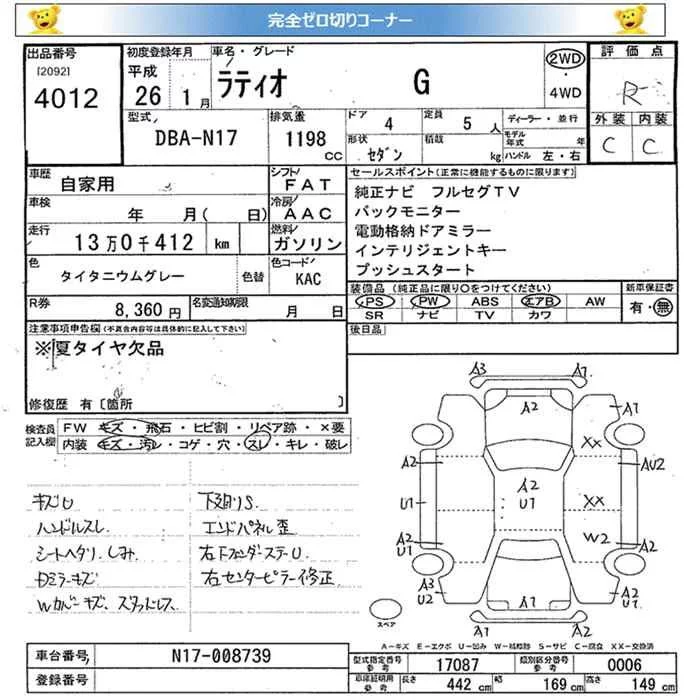 完全ゼロ切りコーナー
出品番号
[2092]
4012
初度登録年月
平成
26 1月
車名・グレード
ラティオ G
2WD
・
4WD
評価点
R
外装 内装
C C
型式
DBA-N17
排気量
1198
cc
ドア
4
定員
5 人
ディーラー・並行
形状
セダン
積載
kg
モデル年式 年
ハンドル 左・右
車歴
自家用
シフト
FAT
車検
年 月( 日)
冷房
AAC
走行
13万0千412 km
燃料
ガソリン
色
タイタニウムグレー
色替
色コード
KAC
R券
8,360円
名変通知期限
月 日
セールスポイント(正常に機能するものに限ります)
純正ナビ フルセグTV
バックモニター
電動格納ドアミラー
インテリジェントキー
プッシュスタート
装備品(純正品に限り○をつけてください)
新車保証書
PS PW ABS エアB AW
SR ナビ TV カワ
有・無
後日品
注意事項申告欄(不具合内容等は具体的に記入して下さい)
※夏タイヤ欠品
修復歴 有〔箇所 〕
検査員記入欄
FW キズ・飛石・ヒビ割・リペア跡・×要
内装 キズ・汚レ・コゲ・穴・スレ・キレ・破レ
キズU
ハンドルスレ
シートヘタリ、しみ
Dミラーキズ
Wカバーキズ、スタッドレス
下廻りS
エンドパネル歪
右FフェンダーステーU
右センターピラー修正
A3 A1
A2
A1
XX
A2
AU2
A2
U1
U1
XX
A2
U1
W2
A2
A3
U2
A2
U1
A1
A1
A2
スペア
A-キズ E-エクボ U-凹み W-補修跡 S-サビ C-腐食 XX-交換済
車台番号
N17-008739
登録番号
型式指定番号
参考
17087
類別区分番号
参考
0006
車庫証明用
参考
長さ
442 cm
幅
169 cm
高さ
149 cm